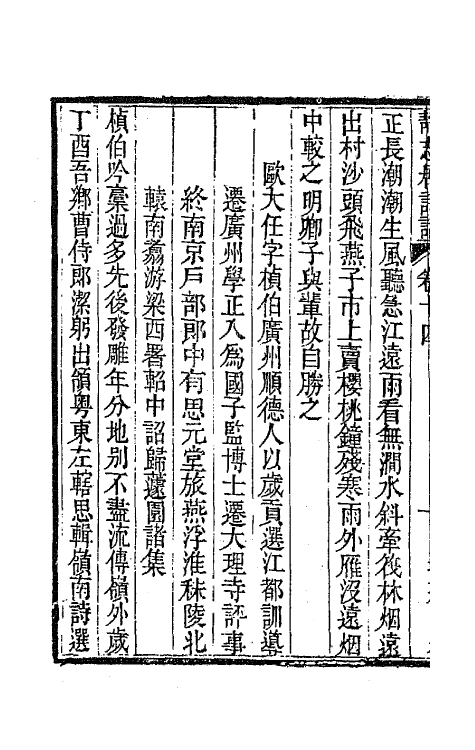 卷十四
正長潮潮生風聽急江遠雨看無澗水斜牽筏林烟遠
出村沙頭飛燕子市上賣櫻桃鐘殘寒雨外雁沒遠烟
中較之明卿子與輩故自勝之
歐大任字楨伯廣州順德人以歲貢選江都訓導
遷廣州學正入爲國子監博士遷大理寺評事
終南京戶部郎中有思元堂旅燕浮淮秣陵北
轅南翥游梁西署軺中詔歸蘧園諸集
楨伯吟稾過多先後發雕年分地别不盡流傳嶺外歲
丁酉吾鄉曹侍郎潔躬出領粤東左轄思輯嶺南詩選